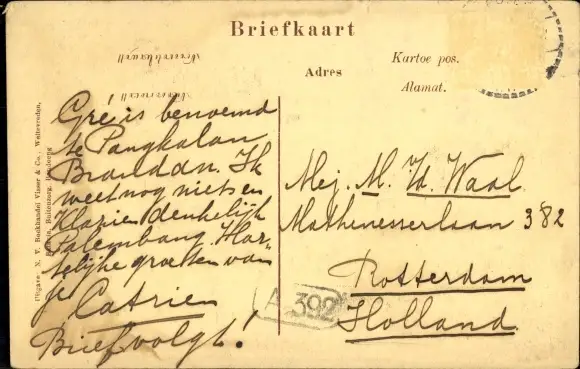 Briefkaart
Kartoe pos.
Adres
Alamat.
Gré is benoemd
te Pangkalan
Brandan. Ik
weet nog niets en
Klazien denkelijk
Palembang. Har-
telijke groeten van
je Catrien
Brief volgt!
Mej. M. v.d. Waal
Mathenesserlaan 382
Rotterdam
Holland.
A 392
Uitgave N. V. Boekhandel Visser & Co., Weltevreden,
Buitenzorg, Bandoeng